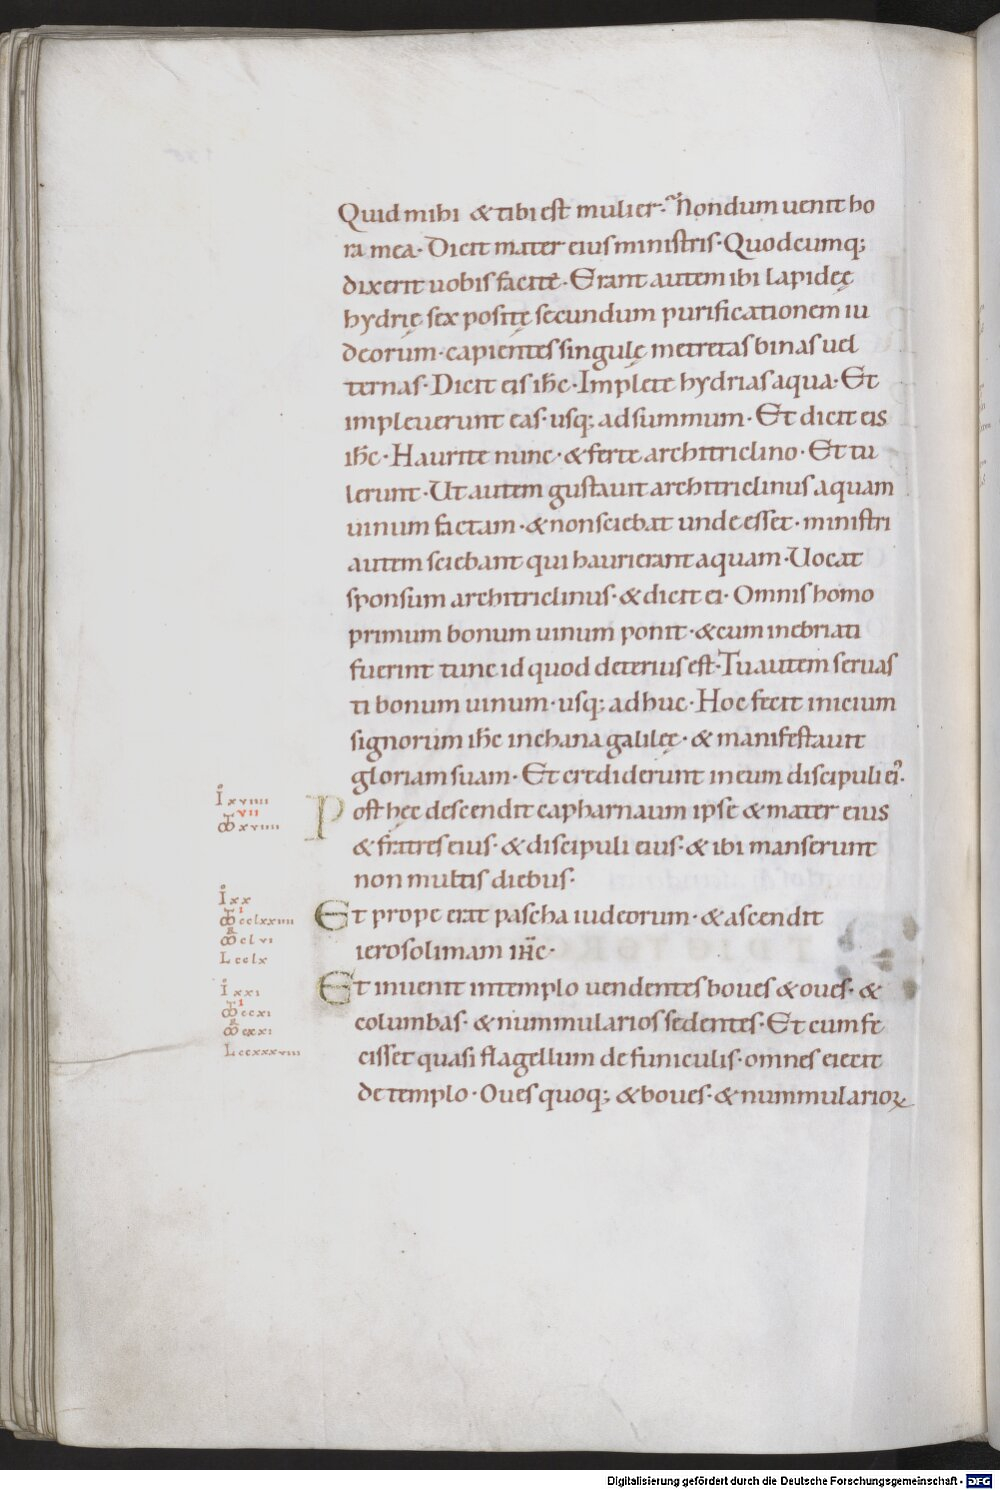 Quid mihi & tibi est mulier· Nondum uenit ho
ra mea· Dicit mater eius ministris· Quodcumq;
dixerit uobis facite· Erant autem ibi lapideę
hydrię sex positę secundum purificationem iu
deorum· capientes singulę metretas binas uel
ternas· Dicit eis ihc· Implete hydrias aqua· Et
impleuerunt eas· usq; ad summum· Et dicit eis
ihc· Haurite nunc· & ferte architriclino· Et tu
lerunt· Ut autem gustauit architriclinus aquam
uinum factam· & non sciebat unde esset· ministri
autem sciebant qui haurierant aquam· Uocat
sponsum architriclinus· & dicit ei· Omnis homo
primum bonum uinum ponit· & cum inebriati
fuerint tunc id quod deterius est· Tu autem seruas
ti bonum uinum· usq; adhuc· Hoc fecit inicium
signorum ihc in chana galileę· & manifestauit
gloriam suam· Et crediderunt in eum discipuli ei'·
I xviiii
VII
xviiii
Post hęc descendit capharnaum ipse & mater eius
& fratres eius· & discipuli eius· & ibi manserunt
non multis diebus·
I xx
I
cclxxiiii
clvi
L cclx
Et prope erat pascha iudeorum· & ascendit
ierosolimam ihc·
I xxi
I
ccxi
cxxi
L ccxxxviii
Et inuenit in templo uendentes boues & oues· &
columbas· & nummularios sedentes· Et cum fe
cisset quasi flagellum de funiculis· omnes eiecit
de templo· Oues quoq; & boues· & nummularioꝝ
Digitalisierung gefördert durch die Deutsche Forschungsgemeinschaft - DFG